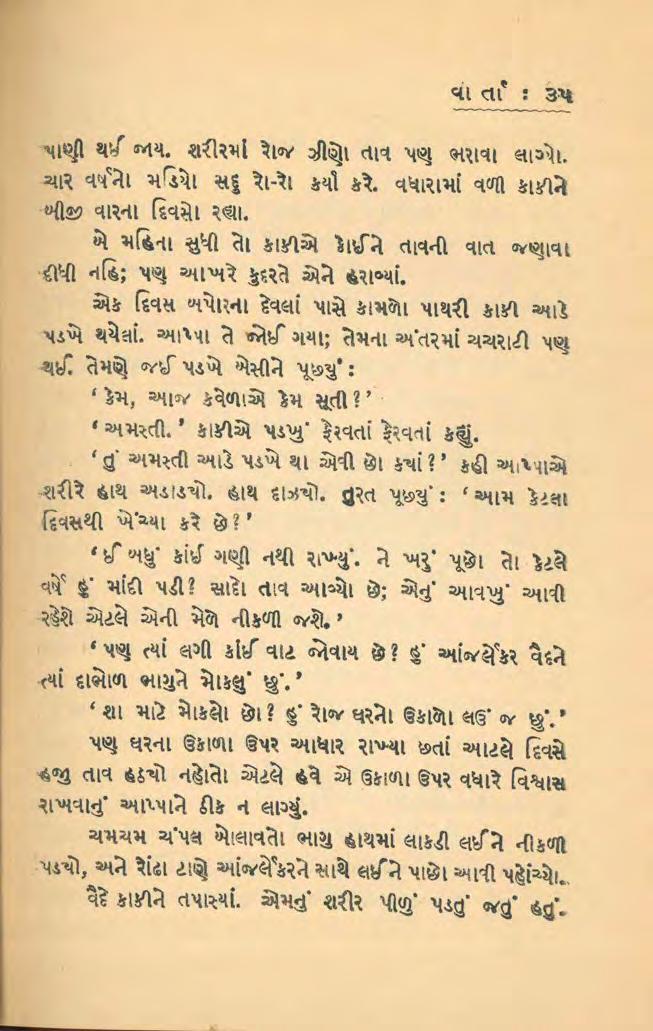 વાર્તા : ૩૫
પાણી થઈ જાય. શરીરમાં રોજ ઝીણો તાવ પણ ભરાવા લાગ્યો.
ચાર વર્ષનો મડિયો સદ્દુ રો-રો કર્યા કરે. વધારામાં વળી કાકીને
બીજી વારના દિવસો રહ્યા.
બે મહિના સુધી તો કાકીએ કોઈને તાવની વાત જણાવા
દીધી નહિ; પણ આખરે કુદરતે એને હરાવ્યાં.
એક દિવસ બપોરના દેવલાં પાસે કામળો પાથરી કાકી આડે
પડખે થયેલાં. આપ્પા તે જોઈ ગયા; તેમના અંતરમાં ચચરાટી પણ
થઈ. તેમણે જઈ પડખે બેસીને પૂછ્યું :
‘ કેમ, આજ કવેળાએ કેમ સૂતી ? ’
‘ અમસ્તી. ’ કાકીએ પડખું ફેરવતાં ફેરવતાં કહ્યું.
‘ તું અમસ્તી આડે પડખે થા એવી છો કયાં ? ’ કહી આપ્પાએ
શરીરે હાથ અડાડયો. હાથ દાઝયો. તુરત પૂછયું : ‘ આમ કેટલા
દિવસથી ખેંચ્યા કરે છે ? ’
‘ ઈ બધું કાંઈ ગણી નથી રાખ્યું. ને ખરું પૂછો તો કેટલે
વર્ષે હું માંદી પડી ? સાદો તાવ આવ્યો છે; એનું આવખું આવી
રહેશે એટલે એની મેળે નીકળી જશે. ’
‘ પણ ત્યાં લગી કાંઈ વાટ જોવાય છે ? હું આંજર્લેકર વૈદને
ત્યાં દાભોળ ભાગુને મોકલું છું. ’
‘ શા માટે મોકલો છો ? હું રોજ ઘરનો ઉકાળો લઉં જ છું. ’
પણ ઘરના ઉકાળા ઉપર આધાર રાખ્યા છતાં આટલે દિવસે
હજી તાવ હઠયો નહોતો એટલે હવે એ ઉકાળા ઉપર વધારે વિશ્વાસ
રાખવાનું આપ્પાને ઠીક ન લાગ્યું.
ચમચમ ચંપલ બોલાવતો ભાગુ હાથમાં લાકડી લઈને નીકળી
પડયો, અને રોંઢા ટાણે આંજર્લેકરને સાથે લઈને પાછો આવી પહોંચ્યો.
વૈદે કાકીને તપાસ્યાં. એમનું શરીર પીળું પડતું જતું હતું.